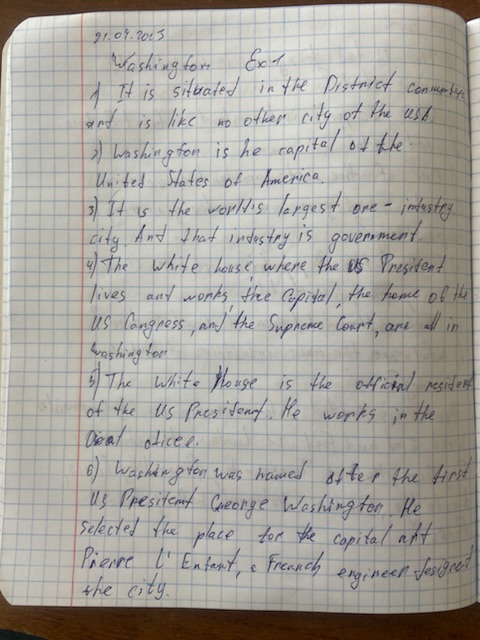 21.09.2023
Washington Ex 1
1) It is situated in the District
and is like no other city of the USA.
2) Washington is he capital of the
United States of America.
3) It is the world's largest one-industry
city And that industry is government.
4) The White house, where the US President
lives and works, the Capital, the home of the
US Congress, and the Supreme Court, are all in
Washington
5) The White House is the official resident
of the US President. He works in the
Oval office.
6) Washington was named after the first
US President George Washington He
selected the place for the capital and
Pierre L'Enfant, a French engineer designed
the city.